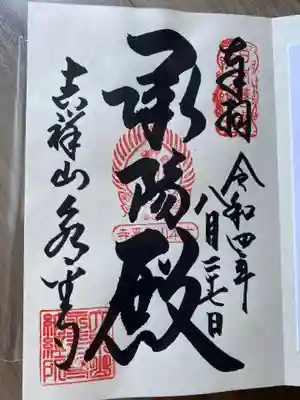 奉拝
令和四年
八月二十七日
承陽殿
吉祥山永平寺